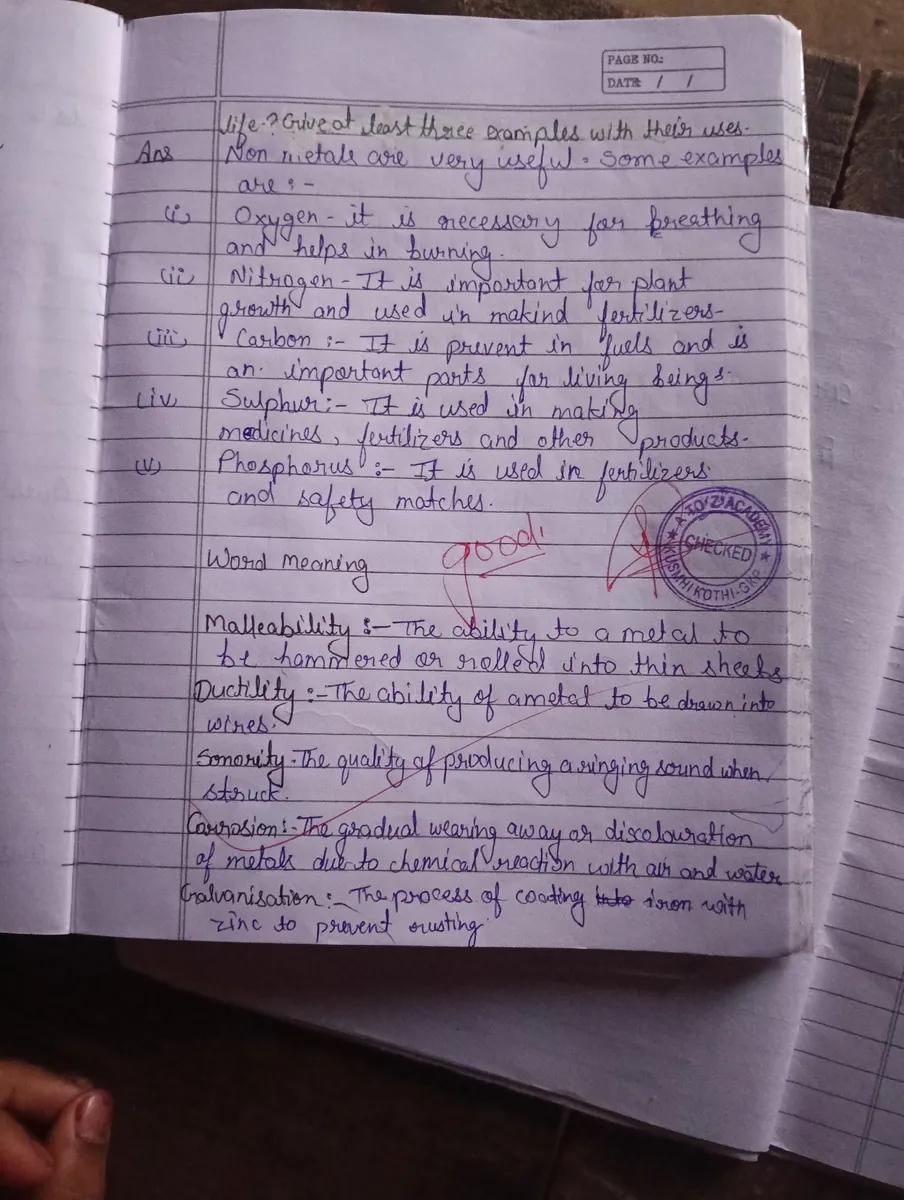 PAGE NO.:
DATE: / /
life? Give at least three examples with their uses.
Ans Non metals are very useful. Some examples
are :-
(i) Oxygen - it is necessary for breathing
and helps in burning.
(ii) Nitrogen - It is important for plant
growth and used in makind fertilizers-
(iii) Carbon :- It is prevent in fuels and is
an important parts for living beings.
(iv) Sulphur :- It is used in making
medicines, fertilizers and other products-
(v) Phosphorus :- It is used in fertilizers
and safety matches.
good
A TO 'Z' ACADEMY
CHECKED
KUSMHI KOTHI-GKP
Word Meaning
Malleability :- The ability to a metal to
be hammered or rolled into thin sheets
Ductility :- The ability of a metal to be drawn into
wires.
Sonority - The quality of producing a ringing sound when
struck.
Corrosion :- The gradual wearing away or discolouration
of metals due to chemical reaction with air and water
Galvanisation :- The process of coating into iron with
zinc to prevent rusting